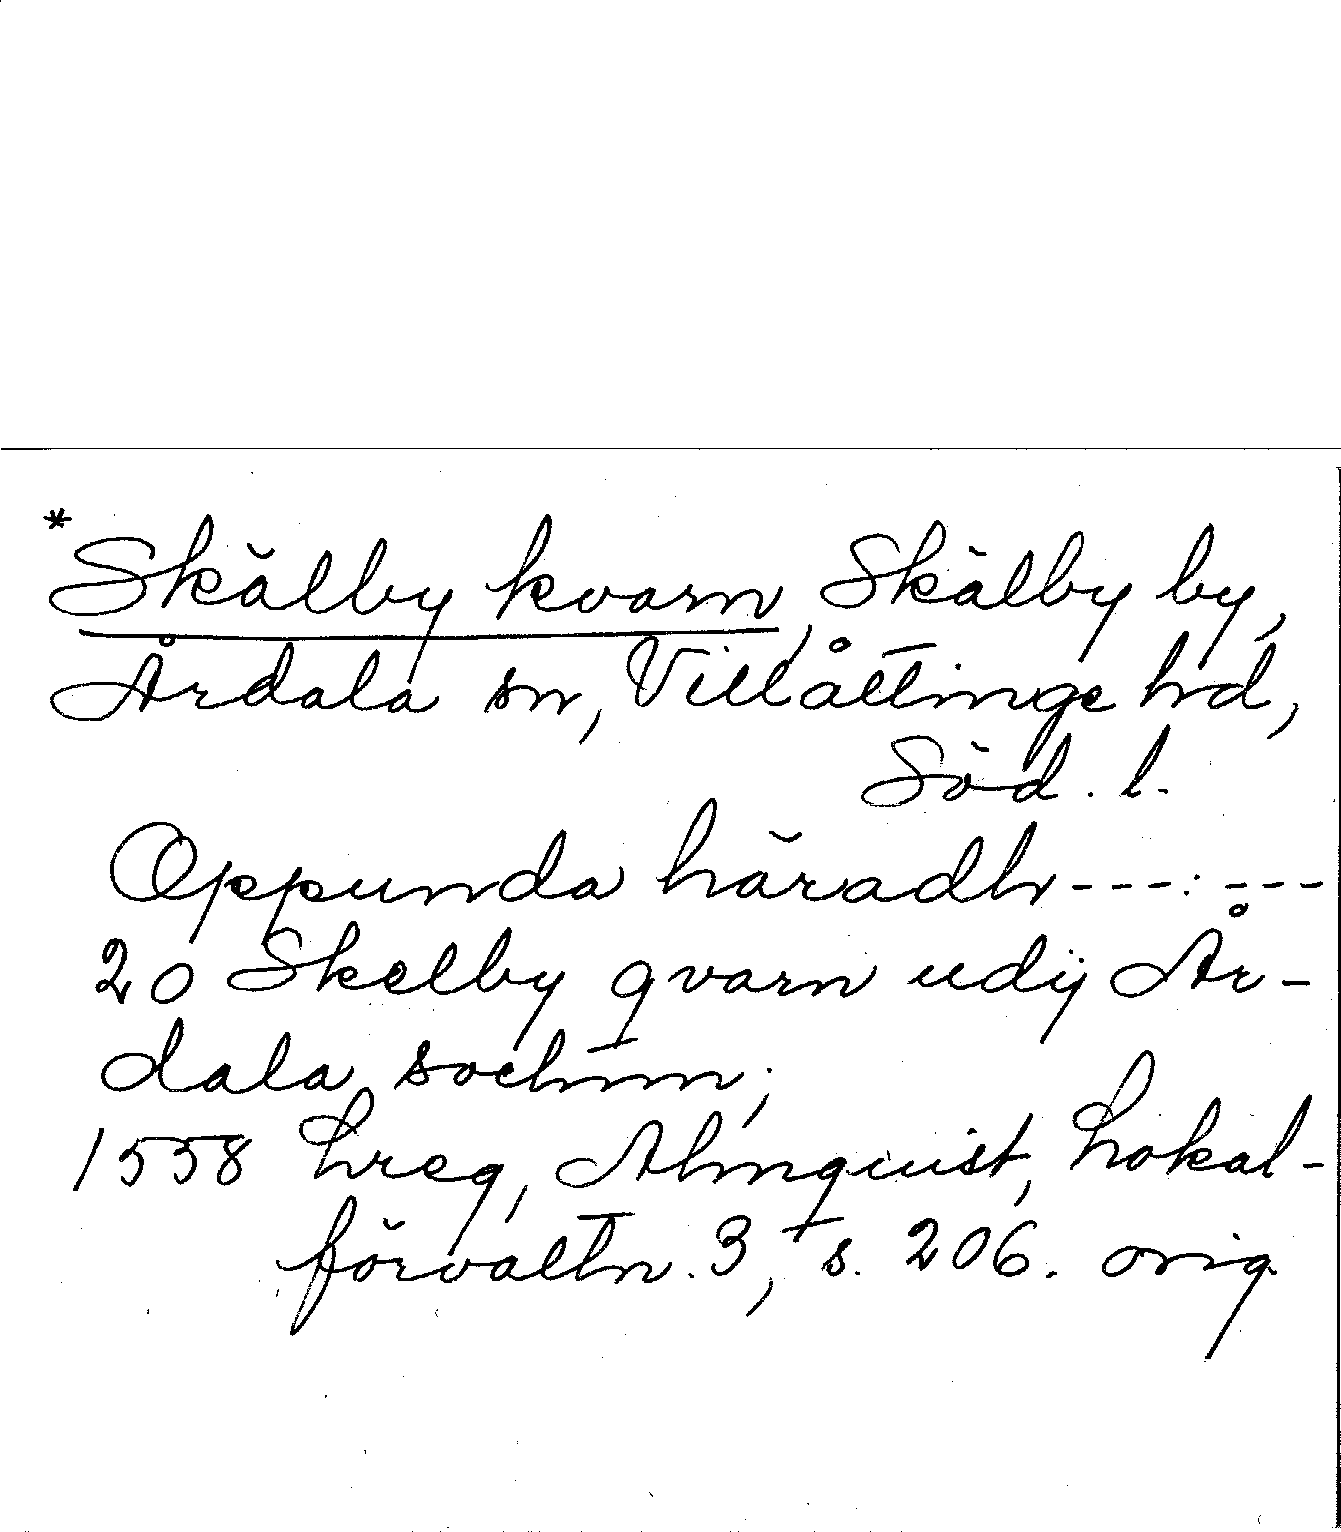 *Skälby kvarn, Skälby by,
Årdala sn, Villåttinge hd,
Söd. l.
Oppunda häradh ---:---
20 Skelby qvarn udij År-
dala sochnn;
1558 hreg, Almquist, Lokal-
förvaltn. 3, s. 206. orig.